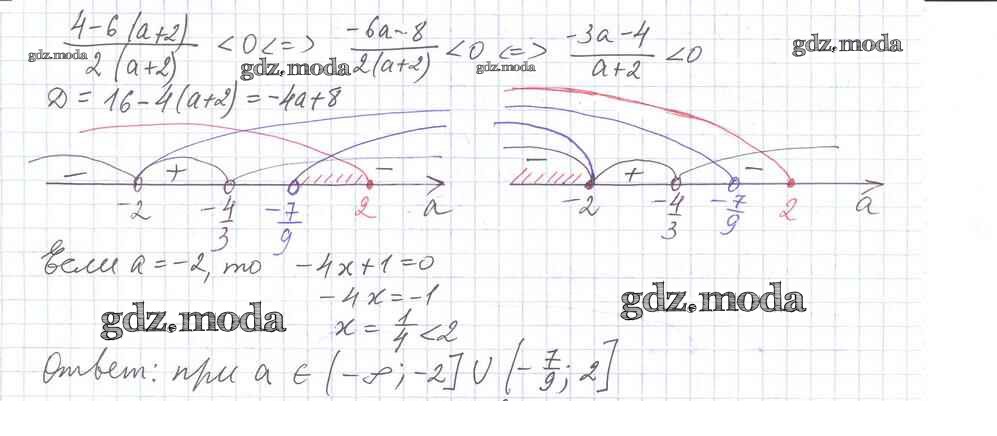 (4-6(a+2))/(2(a+2)) <0 <=> (-6a-8)/(2(a+2)) <0 <=> (-3a-4)/(a+2) <0
gdz.moda gdz.moda gdz.moda gdz.moda
D = 16-4(a+2) = -4a+8
- + - - + -
-2 -4/3 -7/9 2 a -2 -4/3 -7/9 2 a
Если a = -2, то -4x+1=0
-4x = -1
gdz.moda gdz.moda
x = 1/4 <2
Ответ: при a ∈ (-∞; -2] ∪ (-7/9; 2]